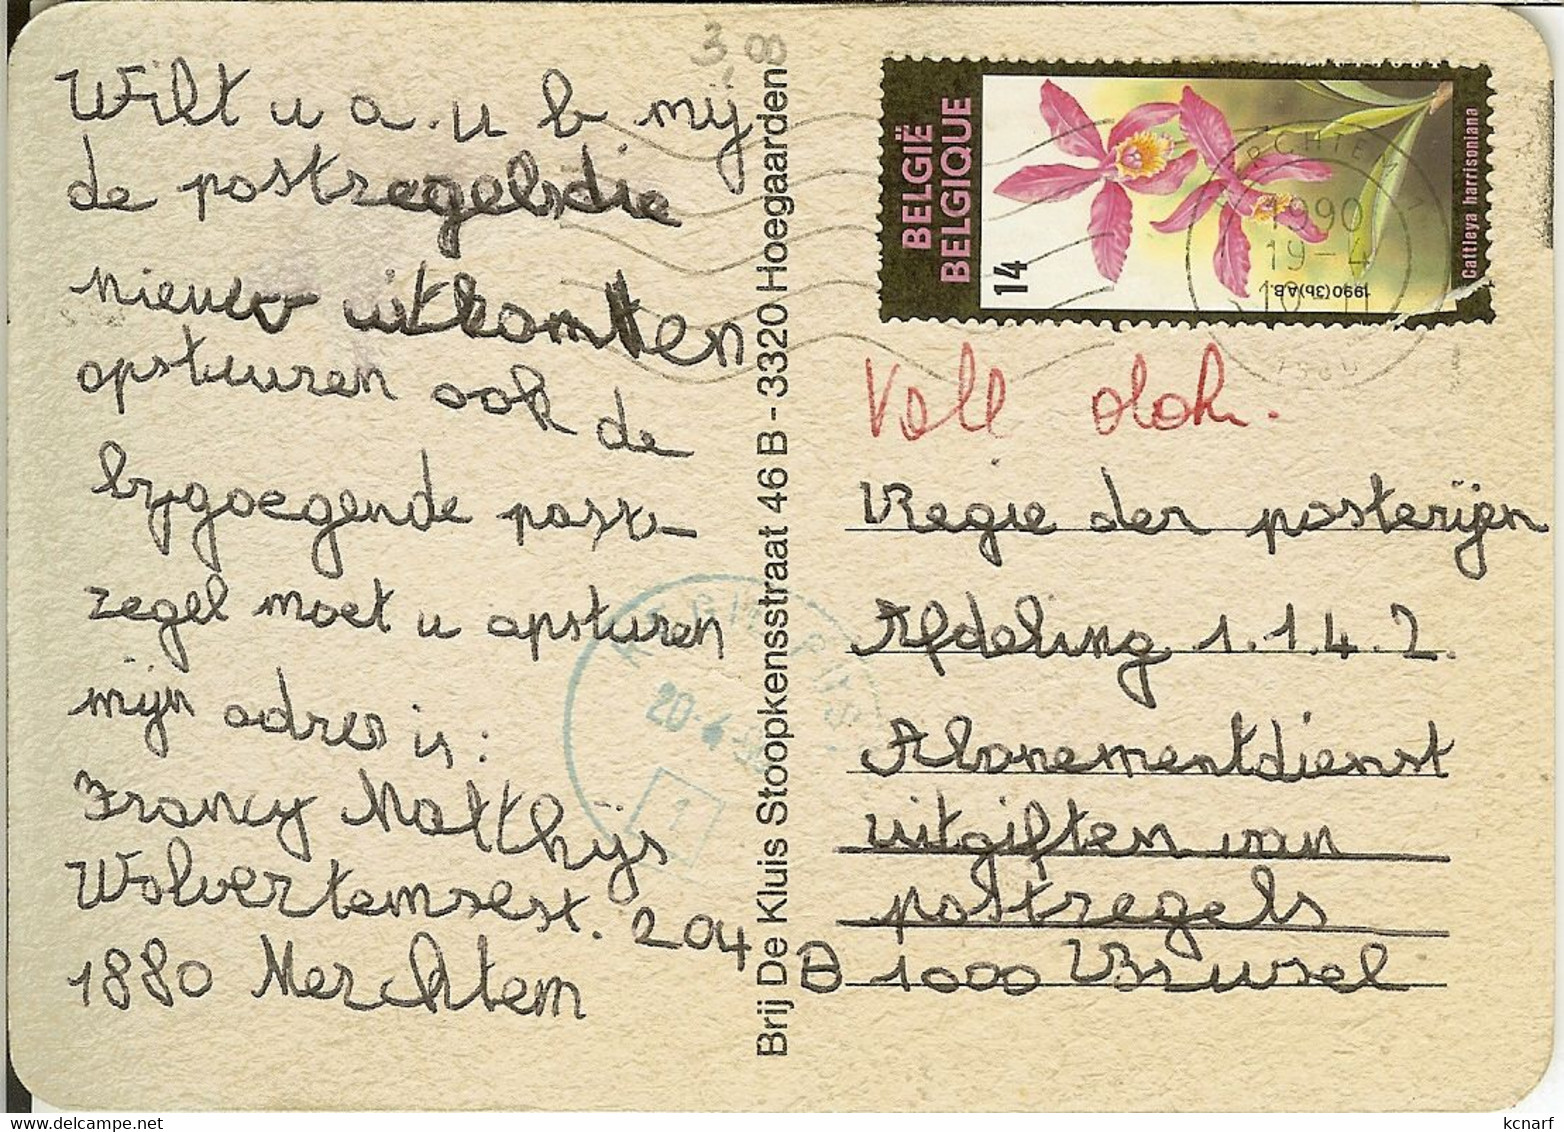 3,8
Wilt u a.u b mij
de postzegels die
nieuw uitkomten
opstuuren ook de
bijgoegende post-
zegel moet u opsturen
mijn adres is:
Francy Matthijs
Wolvertemsest. 204
1880 Merchtem
Brij De Kluis Stoopkensstraat 46 B - 3320 Hoegaarden
BELGIË
BELGIQUE
14
Cattleya harrisoniana
1990(3b)A.B.
1990
19-4
20-4
1
Regie der posterijen
Afdeling 1.1.4.2.
Abonementdienst
uitgiften van
postzegels
B 1000 Brussel
kcnarf